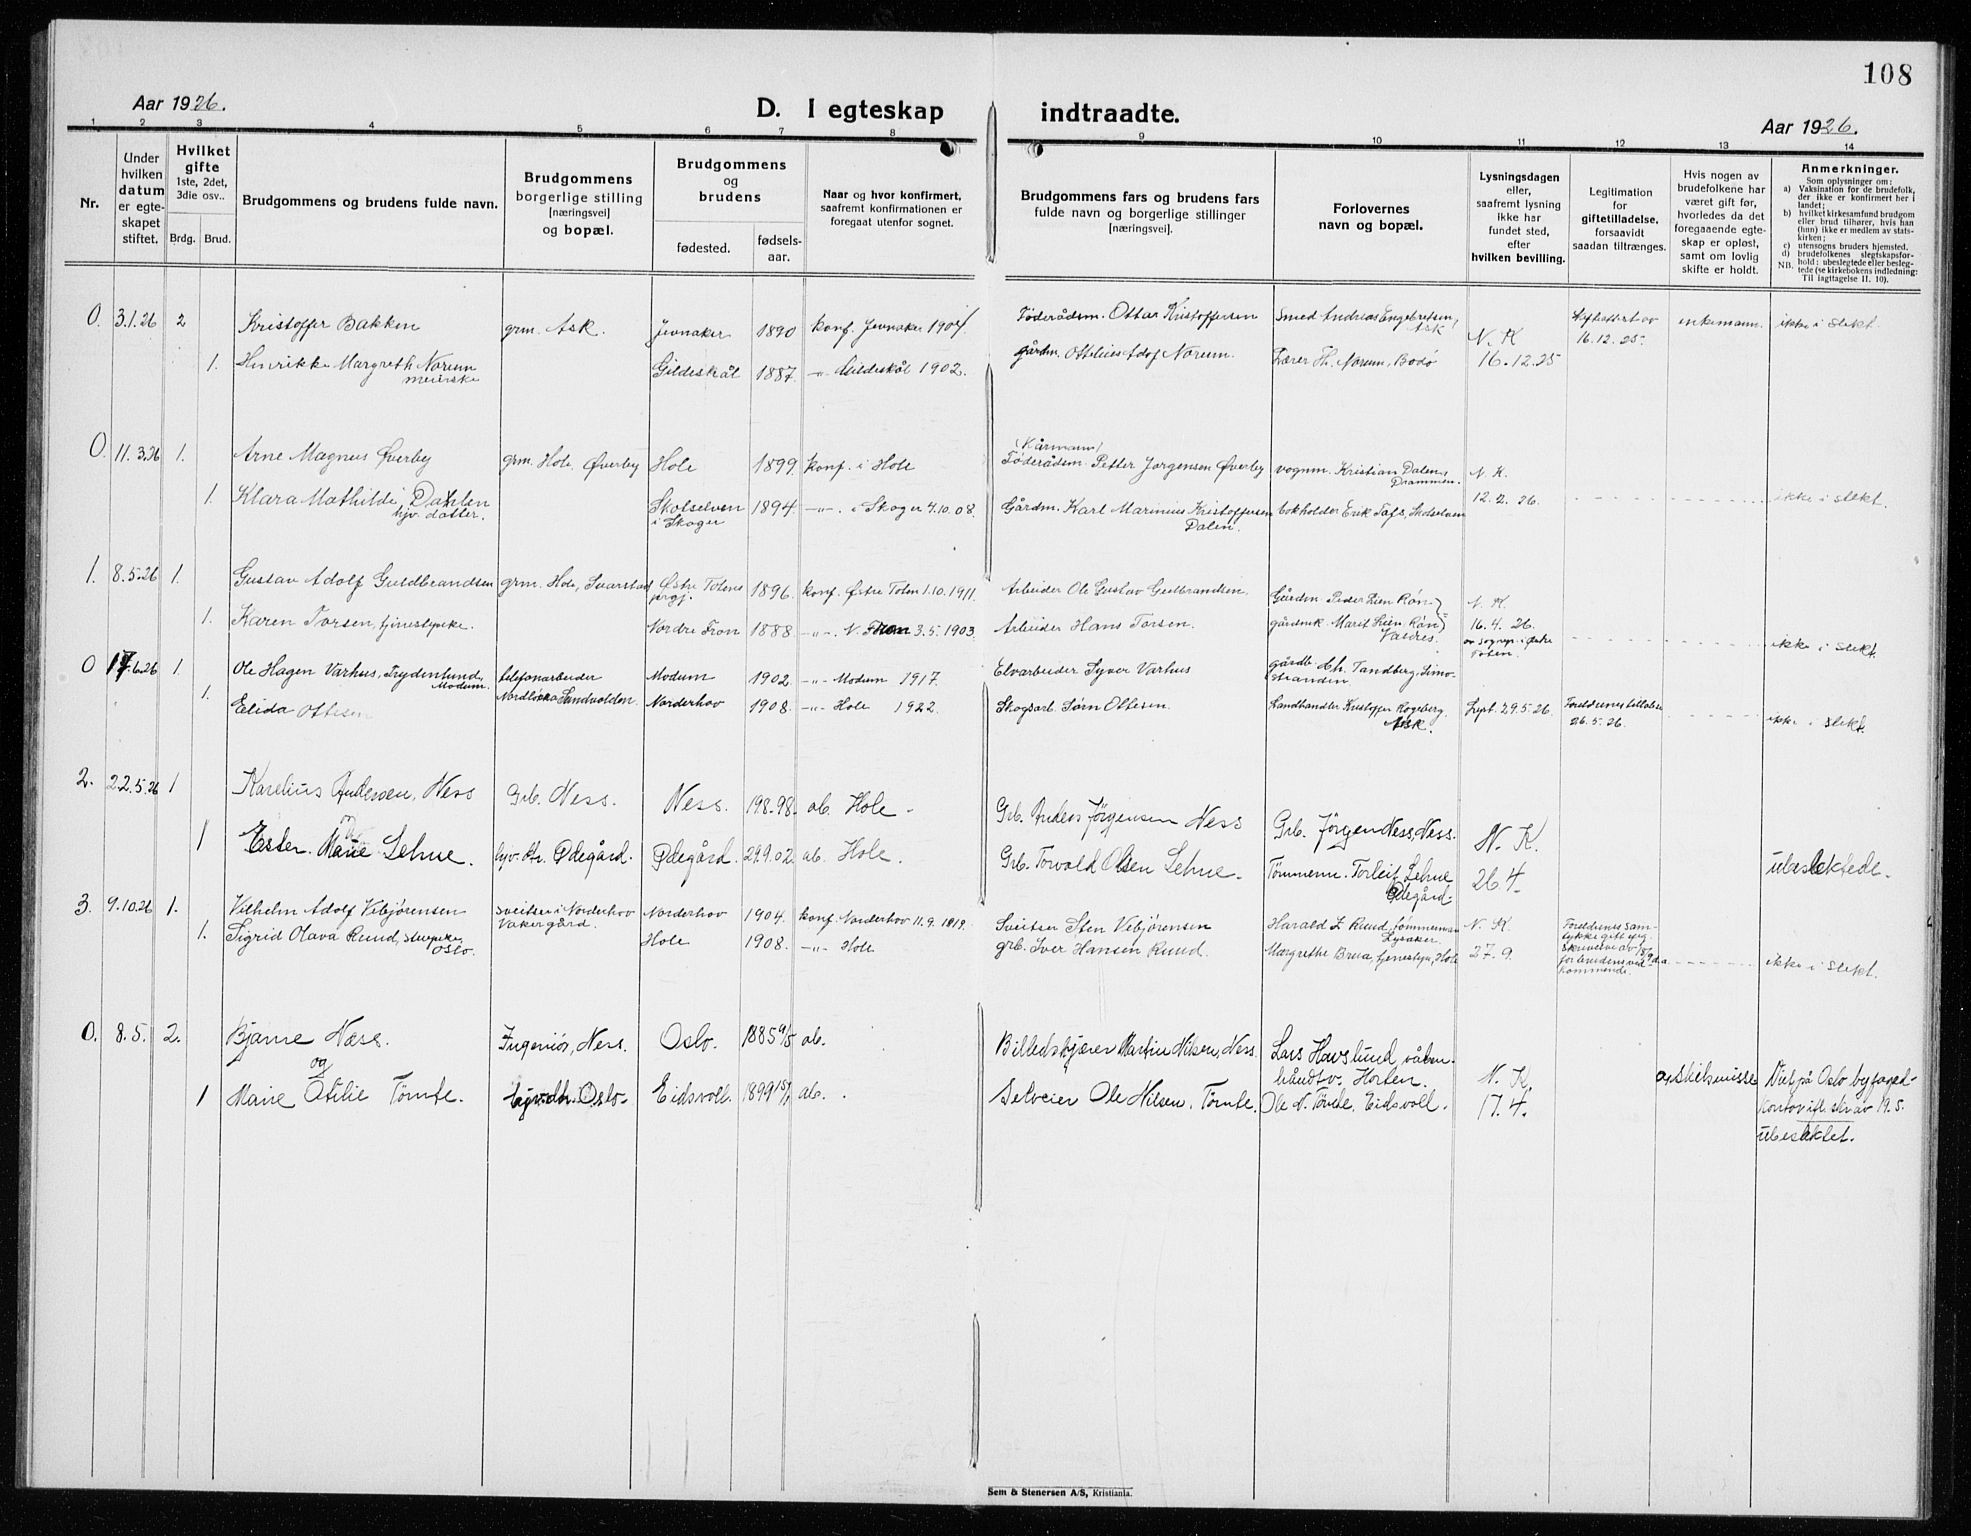 108
Aar 1926.
D. I egteskap indtraadte.
Aar 1926.
1 2 3 4 5 6 7 8 9 10 11 12 13 14
Nr.
Under hvilken datum er egteskapet stiftet.
Hvilket gifte
1ste, 2det, 3die osv..
Brdg. Brud.
Brudgommens og brudens fulde navn.
Brudgommens borgerlige stilling [næringsvei] og bopæl.
Brudgommens og brudens
fødested.
fødsels-aar.
Naar og hvor konfirmert, saafremt konfirmationen er foregaat utenfor sognet.
Brudgommens fars og brudens fars fulde navn og borgerlige stillinger [næringsvei].
Forlovernes navn og bopæl.
Lysningsdagen eller, saafremt lysning ikke har fundet sted, efter hvilken bevilling.
Legitimation for giftetilladelse, forsaavidt saadan tiltrænges.
Hvis nogen av brudefolkene har været gift før, hvorledes da det foregaaende egteskap er opløst, samt om lovlig skifte er holdt.
Anmerkninger.
Som oplysninger om:
a) Vaksination for de brudefolk, der ikke er konfirmert her i landet;
b) hvilket kirkesamfund brudgom eller brud tilhører, hvis han (hun) ikke er medlem av statskirken;
c) utensogns bruders hjemsted.
d) brudefolkenes slegtskapsforhold: ubeslegtede eller beslegtede (se kirkebokens indledning:
NB.
Til iagttagelse II. 10).
0. 3.1.26 2 Kristoffer Bakken grm. Ask. Jevnaker 1890 konf. Jevnaker 1904. Føderådsm. Ottar Kristoffersen Smed Andreas Engebretsen, Ask N. K Skifteattest av 16.12.25 enkemann. ikke i slekt.
1. Henrikke Margreth Norum meierske Gildeskål 1887. -"- Gildeskål 1902. gårdm. Ottelius Adof Norum. Lærer Th. Norum, Bodø 16.12.25
0. 11.3.26 1. Arne Magnus Øverby grm. Hole, Øverby Hole 1899. konf. i Hole (Kårmann) Føderådsm. Petter Jørgensen Øverby vognm. Kristian Dalen, Drammen. N. K.
1. Klara Mathilde Dahlen hjv. datter. Skotselven i Skoger 1894 -"- i Skoger 4.10.08. Gårdm. Karl Marinius Kristoffersen Dalen. bokholder Erik Tafs, Skotselven 12.2.26. ikke i slekt.
1. 8.5.26 1. Gustav Adolf Guldbrandsen grm. Hole, Svarstad Østre Totens prgj. 1896. konf. Østre Toten 1.10.1911. Arbeider Ole Gustav Gulbrandsen. Gårdm. Peder Lien Røn N. K.
1. Karen Torsen, tjenestpike. Nordre Fron 1888. -"- N. Fron 3.5.1903. Arbeider Hans Torsen. gårdmk. Marit Lien, Røn Valdres. 16.4.26 av sogнpr. i Østre Toten. ikke i slekt.
0 17.6.26 1. Ole Hagen Varhus, Frydenlund, Modum. telefonarbeider Nordløkka Sundvolden. Modum 1902 -"- Modum 1917. Elvarbeider Syver Varhus gårdb. Chr. Tandberg, Simostranden
1. Elida Ottesen Norderhov 1908. -"- Hole 1922. Skogsarb. Sørn Ottesen. Landhandler Kristoffer Rogeberg. Ask. Lyst. 29.5.26. Foreldrenes tillatelse 26.5.26. ikke i slekt.
2. 22.5.26 1 Karelius Andersen, Ness Grb. Ness. Ness. 19 8.98. ab. Hole. Grb. Anders Jørgensen Ness Grb. Jørgen Ness, Ness. N. K.
og
1 Ester Marie Lehne. hjv. dtr. Ødegård. Ødegård. 29 9.02. ab. Hole. Grb. Torvald Olsen Lehne. Tømmerm. Torleif Lehne Ødegård. 26.4. ubeslektede.
3. 9.10.26 1. Vilhelm Adolf Vebjørensen sveitser i Norderhov Vakergård. Norderhov 1904. konf. Norderhov 11.9.1819. Sveitser Sten Vebjørensen Harald I. Ruud, tømmermann Lysaker. N. K. Foreldrenes samtykke gitt ved skrivelse av 18/9 d.a. for brudens vedkommende.
1. Sigrid Olava Ruud, stuepike, Oslo. Hole 1908. -"- Hole grb. Iver Hansen Ruud. Margrethe Brua, tjenestpi, Hole 27.9. ikke i slekt.
0. 8.5. 2. Bjarne Næss. Ingeniør, Ness. Oslo. 1885 9/5 ab. Billedskjærer Martin Nilsen, Ness. Lars Havslund, våbenhåndtv. Horten. N. K.
og
1 Marie Otilie Tømte. hjv. dtr. Oslo. Eidsvoll. 1899 15/7 ab. Selveier Ole Nilsen, Tømte. Ole N. Tømte, Eidsvoll. 17.4. av skilsmisse Viet på Oslo byfogedkontor ifl. skr. av 19.5. ubeslektet.
Sem & Stenersen A/S, Kristiania.